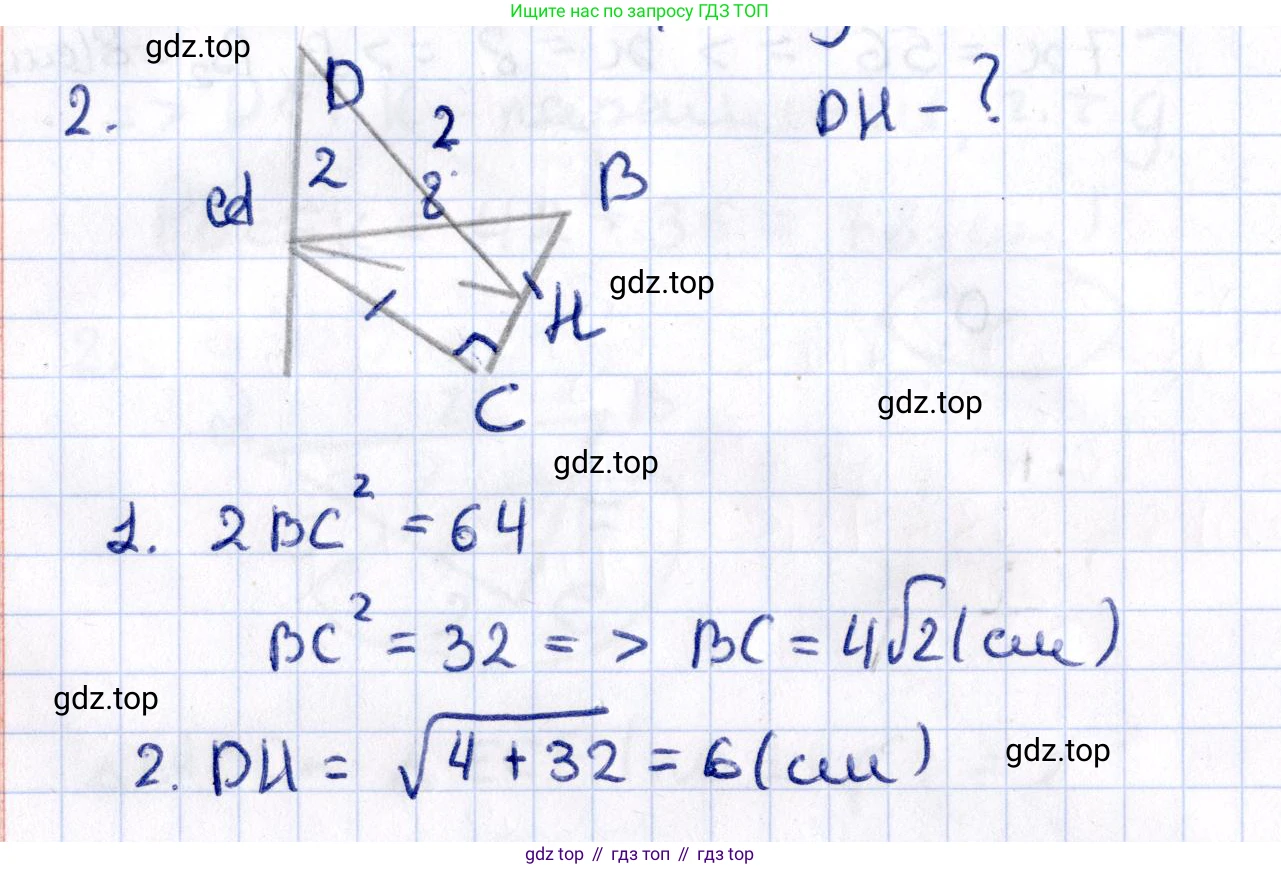 Ищите нас по запросу ГДЗ ТОП
gdz.top
2.
D
2
2
8
B
DH - ?
gdz.top
H
C
gdz.top
gdz.top
1. 2BC² = 64
BC² = 32 = > BC = 4√2 (см)
gdz.top
2. DH = √4 + 32 = 6 (см)
gdz.top
gdz top // гдз топ // гдз top